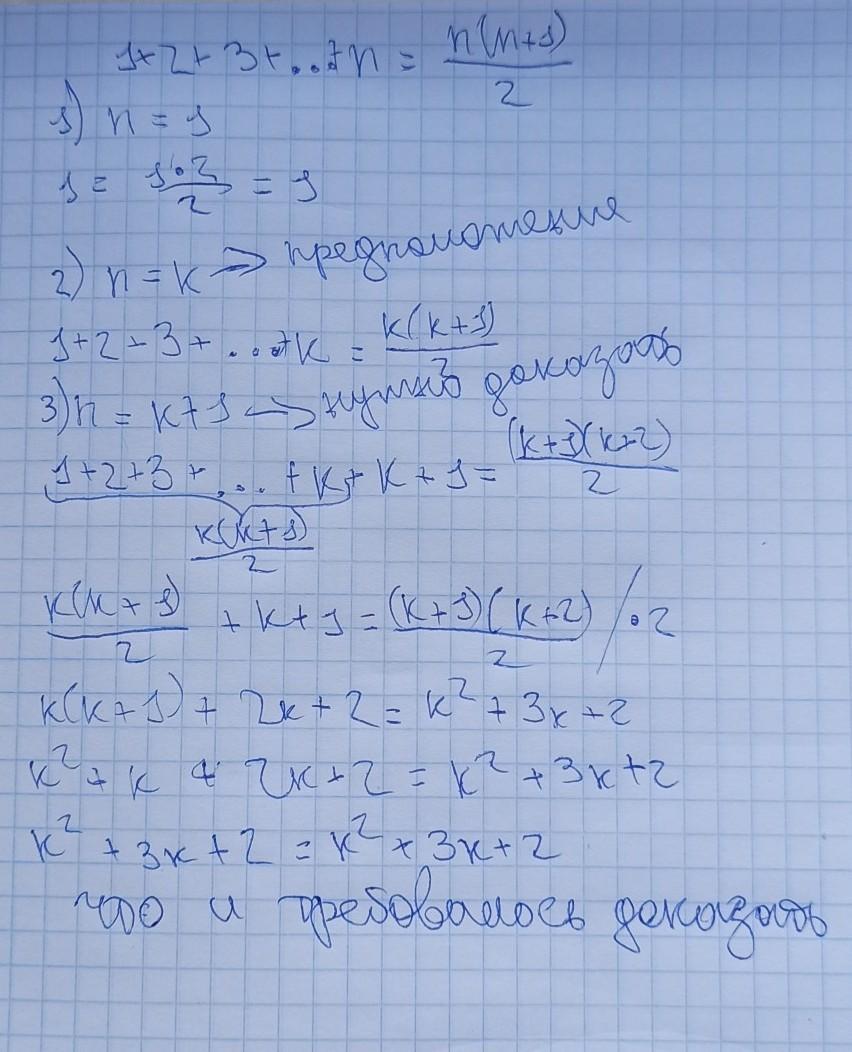 1+2+3+...+n = n(n+1)/2
1) n = 1
1 = 1·2/2 = 1
2) n = k → предположения
1+2+3+...+k = k(k+1)/2
3) n = k+1 → нужно доказать
1+2+3+...+k+k+1 = (k+1)(k+2)/2
k(k+1)/2
k(k+1)/2 + k+1 = (k+1)(k+2)/2 /·2
k(k+1) + 2k+2 = k² + 3k+2
k² + k + 2k+2 = k² + 3k+2
k² + 3k+2 = k² + 3k+2
что и требовалось доказать